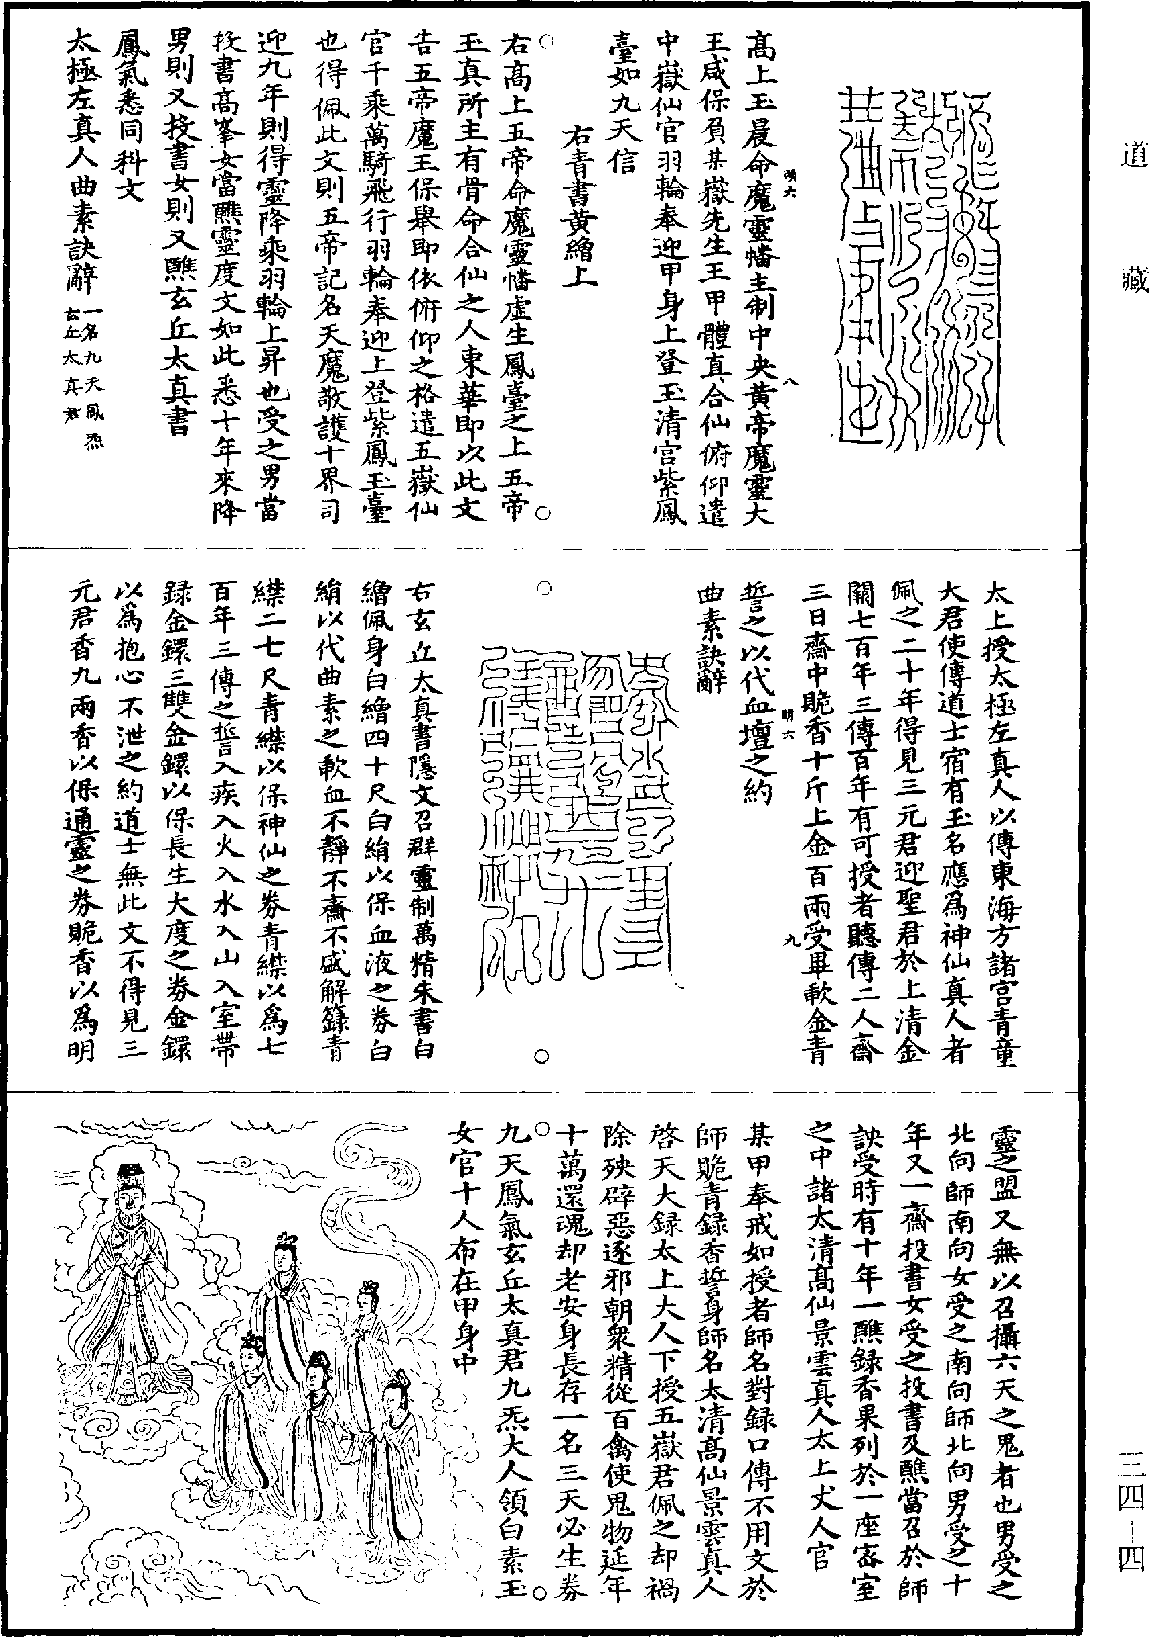 道
藏
高上玉晨命魔靈幡主制中央黃帝魔靈大
王咸保負某嶽先生王甲體真合仙俯仰遣
中嶽仙官羽輪奉迎甲身上登玉清宫紫鳳
臺如九天信
右青書黃繒上
右高上五帝命魔靈幡虛生鳳臺之上五帝
玉真所主有骨命合仙之人東華即以此文
告五帝魔王保舉即依俯仰之格遣五嶽仙
官千乘萬騎飛行羽輪奉迎上登紫鳳玉臺
也得佩此文則五帝記名天魔敬護十界司
迎九年則得靈降乘羽輪上昇也受之男當
投書高峯女當醮靈度文如此悉十年來降
男則又投書女則又醮玄丘太真書
鳳氣悉同科文
太極左真人曲素訣辭 一名九天鳳炁
玄丘太真書
太上授太極左真人以傳東海方諸宫青童
大君使傳道士宿有玉名應為神仙真人者
佩之二十年得見三元君迎聖君於上清金
闕七百年三傳百年有可授者聽傳二人齋
三日齋中賝香十斤上金百兩受畢軟金青
誓之以代血壇之約
曲素訣辭
右玄丘太真書隱文召群靈制萬精朱書白
繒佩身白繒四十尺白絹以保血液之券白
絹以代曲素之軟血不靜不齋不盛解籙青
緤二七尺青緤以保神仙之券青緤以為七
百年三傳之誓入疾入火入水入山入室帶
録金鐶三雙金鐶以保長生大度之券金鐶
以為抱心不泄之約道士無此文不得見三
元君香九兩香以保通靈之券賝香以為明
靈之盟又無以召攝六天之鬼者也男受之
北向師南向女受之南向師北向男受之十
年又一齋投書女受之投書及醮當召於師
訣受時有十年一醮録香果列於一座密室
之中諸太清高仙景雲真人太上丈人官
某甲奉戒如授者師名對録口傳不用文於
師賝青録香誓身師名太清高仙景雲真人
啓天大録太上大人下授五嶽君佩之却禍
除殃辟惡逐邪朝衆精從百禽使鬼物延年
十萬還魂却老安身長存一名三天必生券
九天鳳氣玄丘太真君九炁大人領白素玉
女官十人布在甲身中
三四-四